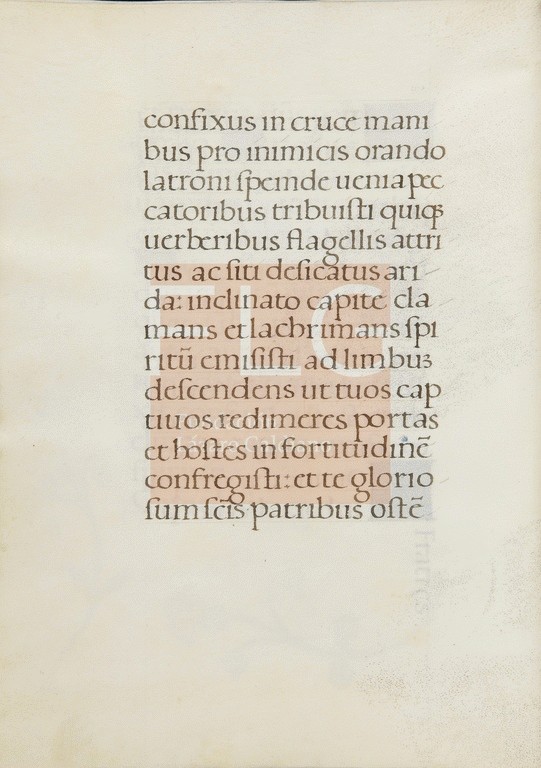 confixus in cruce mani
bus pro inimicis orando
latroni ſpem de uenia pec
catoribus tribuiſti quiqꝫ
uerberibus flagellis attri
tus ac ſiti deſicatus ari
da: inclinato capite cla
mans et lachrimans ſpi
ritū emiſiſti ad limbuꝫ
deſcendens ut tuos cap
tiuos redimeres portas
et hoſtes in fortitudinē
confregiſti: et te glorio
ſum ſc̄is patribus oſtē
TLC